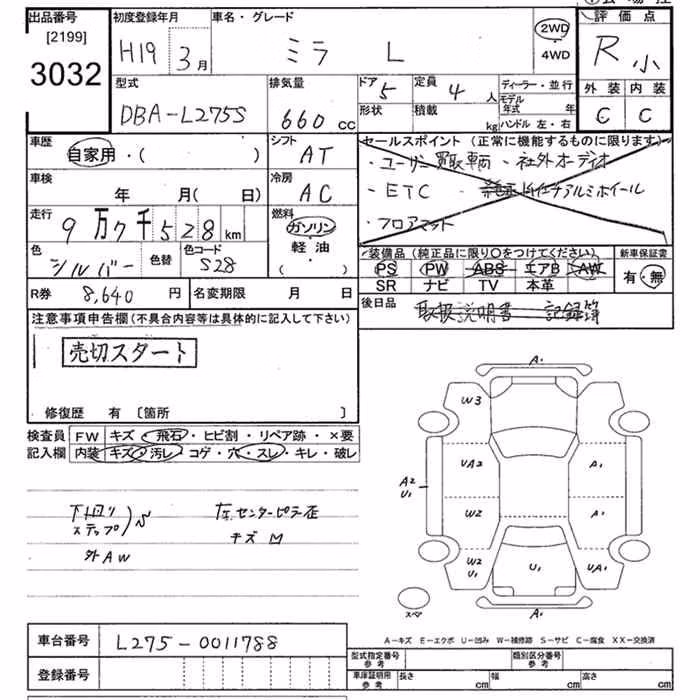 出品番号
[2199]
3032
初度登録年月
H19 3月
車名・グレード
ミラ L
2WD
・
4WD
評価点
R 小
外装 内装
C C
型式
DBA-L275S
排気量
660 cc
ドア 5
形状
定員 4 人
積載 kg
ディーラー・並行
モデル年式 年
ハンドル 左・右
車歴
自家用・( )
シフト
AT
車検
年 月( 日)
冷房
AC
走行
9万7千528km
燃料
ガソリン
・
軽油
( )
色
シルバー
色替
色コード
S28
セールスポイント(正常に機能するものに限ります)
・ユーザー買取車両 ・社外オーディオ
・ETC ・アルミホイール
・フロアマット
装備品(純正品に限り○をつけてください)
PS PW ABS エアB AW
SR ナビ TV 本革
新車保証書
有・無
R券 8,640 円
名変期限 月 日
後日品
取扱説明書 記録簿
注意事項申告欄(不具合内容等は具体的に記入して下さい)
売切スタート
修復歴 有 〔箇所 〕
検査員
記入欄
FW キズ・飛石・ヒビ割・リペア跡・×要
内装 キズ・汚レ・コゲ・穴・スレ・キレ・破レ
下回り
ステップ)S
外AW
左センターピラー歪
キズ凹
A1
W3
UA2
A1
A2
U1
W2
A1
W2
U1
U1
UA1
スペア
A1
A-キズ E-エクボ U-凹み W-補修跡 S-サビ C-腐食 XX-交換済
車台番号 L275-0011788
登録番号
型式指定番号
参考
類別区分番号
参考
車庫証明用
参考
長さ cm 幅 cm 高さ cm